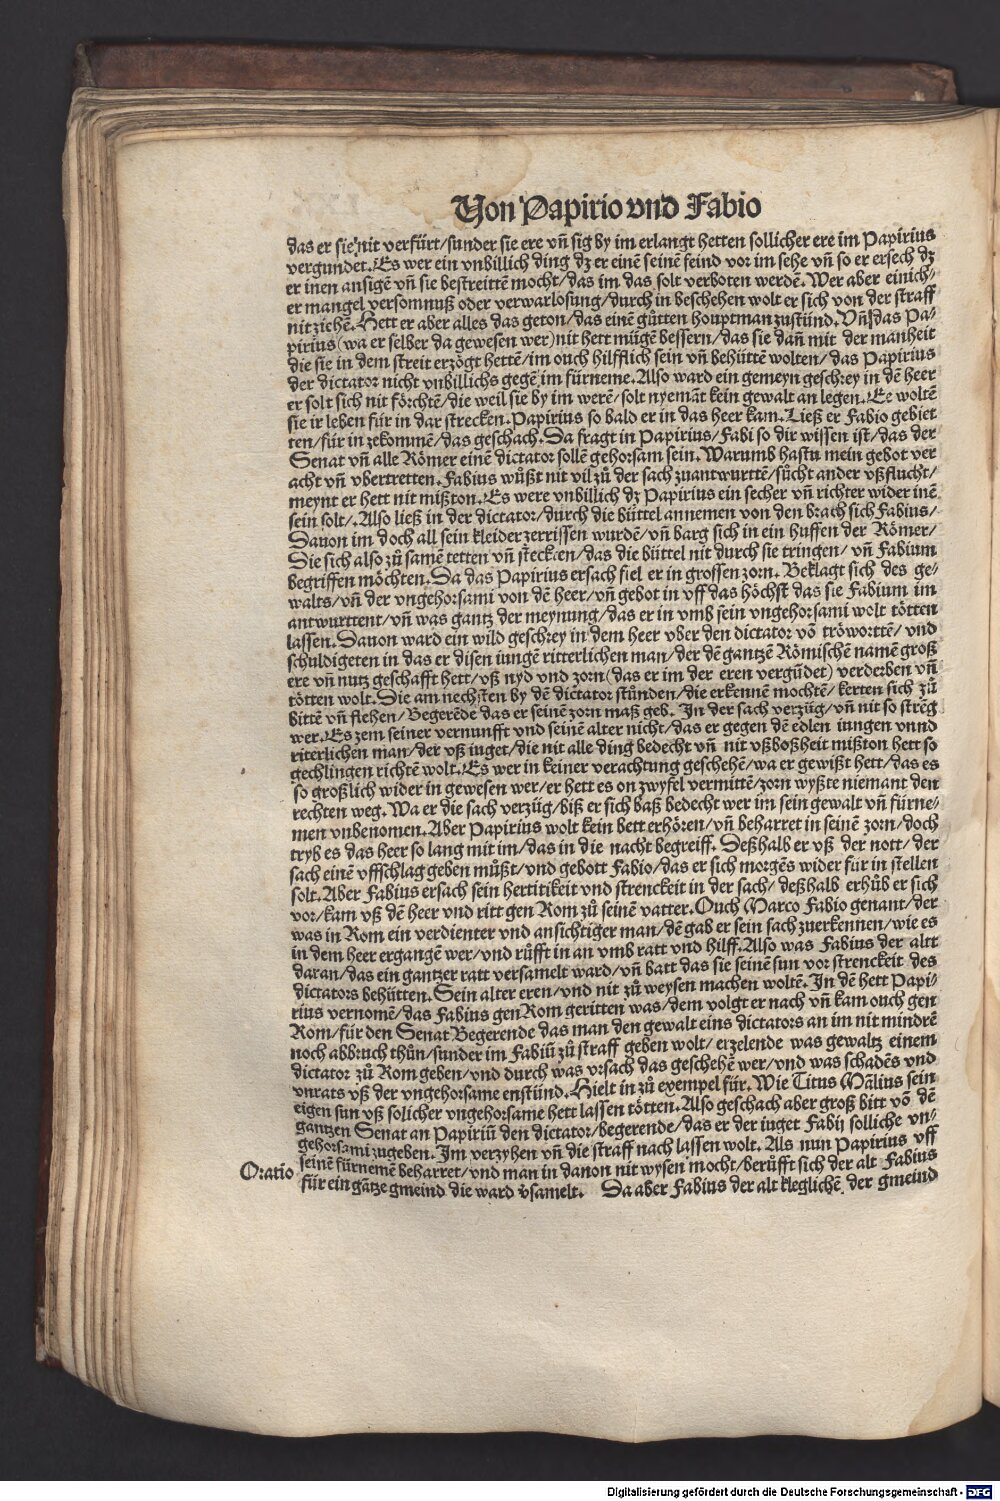 Von Papirio vnd Fabio
das er sie nit verfürt/sunder sie ere vñ sig by im erlangt hetten sollicher ere im Papirius
vergundet. Es wer ein vnbillich ding dz er einē seinē feind vor im sehe vñ so er ersech dz
er inen ansigē vñ sie bestreittē mocht/das im das solt verboten werdē. Wer aber einich-
er mangel versomnuß oder verwarlosung/durch in beschehen wolt er sich von der straff
nit ziehē. Hett er aber alles das geton/das einē gůtten houptman zustünd. Vñ das Pa-
pirius (wa er selber da gewesen wer) nit hett mügē bessern/das sie dañ mit der manheit
die sie in dem streit erzögt hettē/im ouch hilfflich sein vñ behüttē wolten/das Papirius
der dictator nicht vnbillichs gegē im fürneme. Also ward ein gemeyn geschrey in dē heer
er solt sich nit förchtē/die weil sie by im werē/solt nyemāt kein gewalt an legen. Es woltē
sie ir leben für in dar strecken. Papirius so bald er in das heer kam. Ließ er Fabio gebiet
ten/für in zekommē/das geschach. Da fragt in Papirius/Fabi so dir wissen ist/das der
Senat vñ alle Römer einē dictator sollē gehorsam sein. Warumb hastu mein gebot ver
acht vñ vbertretten. Fabius wůßt nit vil zů der sach zuantwurttē/sůcht ander vßflucht/
meynt er hett nit mißton. Es were vnbillich dz Papirius ein secher vñ richter wider inē
sein solt/. Also ließ in der dictator/durch die büttel annemen von den brach sich Fabius/
Dauon im doch all sein kleider zerrissen wurdē/vñ barg sich in ein huffen der Römer/
Die sich also zů samē tetten vñ stecktē/das die büttel nit durch sie tringen/ vñ Fabium
begriffen möchten. Da das Papirius ersach fiel er in grossen zorn. Beklagt sich des ge-
walts/vñ der vngehorsami von dē heer/vñ gebot in vff das höchst das sie Fabium im
antwurttent/vñ was gantz der meynung/das er in vmb sein vngehorsami wolt tötten
lassen. Dauon ward ein wild geschrey in dem heer vber den dictator vō tröworttē/ vnd
schuldigeten in das er disen iungē ritterlichen man/der dē gantzē Römischē namē groß
ere vñ nutz geschafft hett/vß nyd vnd zorn (das er im der eren vergüdet) verderben vñ
tötten wolt. Die am nechsten by dē dictator stůnden/die erkennē mochtē/kerten sich zů
bittē vñ flehen/Begerēde das er seinē zorn maß geb. In der sach verzüg/vñ nit so strēg
wer. Es zem seiner vernunfft vnd seinē alter nicht/das er gegen dē edlen iungen vnnd
riterlichen man/der vß iuget/die nit alle ding bedecht vñ nit vßboßheit mißton hett so
gechlingen richtē wolt. Es wer in keiner verachtung geschehē/wa er gewißt hett/das es
so großlich wider in gewesen wer/er hett es on zwyfel vermittē/zorn wyßte niemant den
rechten weg. Wa er die sach verzüg/biß er sich baß bedecht wer im sein gewalt vñ fürne-
men vnbenomen. Aber Papirius wolt kein bett erhören/vñ beharret in seinē zorn/doch
tryb es das heer so lang mit im/das in die nacht begreiff. Deßhalb er vß der nott/der
sach einē vffschlag geben můßt/vnd gebott Fabio/das er sich morgēs wider für in stellen
solt. Aber Fabius ersach sein hertitikeit vnd strenckeit in der sach/deßhalb erhůb er sich
vor/kam vß dē heer vnd ritt gen Rom zů seinē vatter. Ouch Marco Fabio genant/der
was in Rom ein verdienter vnd ansichtiger man/dē gab er sein sach zuerkennen/wie es
in dem heer ergangē wer/vnd růfft in an vmb ratt vnd hilff. Also was Fabius der altt
daran/das ein gantzer ratt versamelt ward/vñ batt das sie seinē sun vor strenckeit des
dictators behütten. Sein alter eren/vnd nit zů weysen machen woltē. In dē hett Papi-
rius vernomē/das Fabius gen Rom geritten was/dem volgt er nach vñ kam ouch gen
Rom/für den Senat Begerende das man den gewalt eins dictators an im nit mindrē
noch abbruch thůn/sunder im Fabiū zů straff geben wolt/erzelende was gewaltz einem
dictator zů Rom geben/vnd durch was vrsach das geschehē wer/vnd was schadēs vnd
vnrats vß der vngehorsame enstünd. Hielt in zů exempel für. Wie Titus Māliūs sein
eigen sun vß solicher vngehorsame hett lassen tötten. Also geschach aber groß bitt vō dē
gantzen Senat an Papiriū den dictator/begerende/das er der iuget Fabij solliche vn-
gehorsami zugeben. Im verzyhen vñ die straff nach lassen wolt. Als nun Papirius vff
seinē fürnemē beharret/vnd man in dauon nit wysen mocht/berüfft sich der alt Fabius
Oratio für ein gātze gmeind die ward v̉samelt. Da aber Fabius der alt kleglichē der gmeind
Digitalisierung gefördert durch die Deutsche Forschungsgemeinschaft - DFG